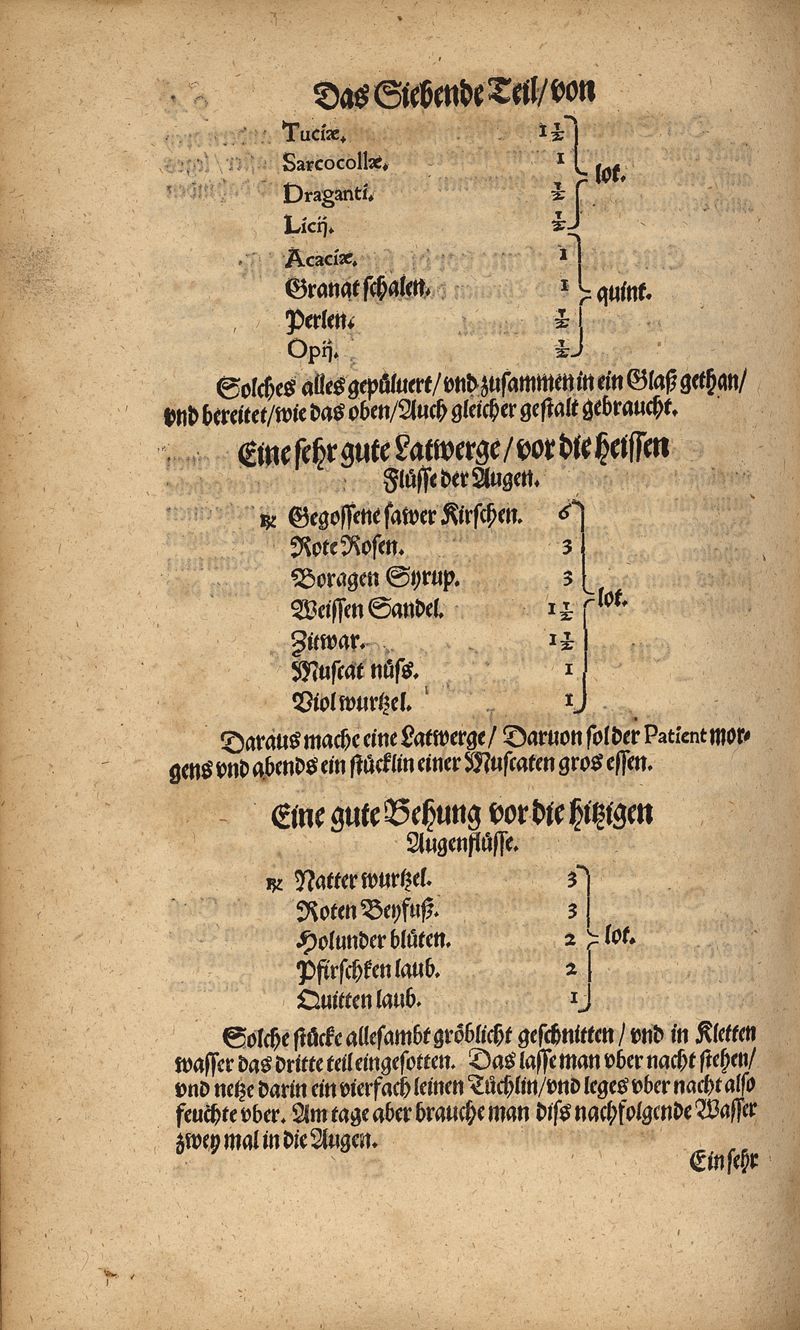 Das Siebende Teil/von
Tuciæ. 1 ½
Sarcocollæ. 1
lot.
Draganti. ½
Licij. ½
Acaciæ. 1
Granat schalen. 1
quint.
Perlen. ½
Opij. ½
Solches alles gepůluert/vnd zusammen in ein Glaß gethan/
vnd bereitet/wie das oben/Auch gleicher gestalt gebraucht.
Eine sehr gute Latwerge/vor die heissen
Flüsse der Augen.
℞ Gegossene sawer Kirschen. 6
Rote Rosen. 3
Boragen Syrup. 3
lot.
Weissen Sandel. 1 ½
Zitwar. 1 ½
Muscat nüss. 1
Viol wurtzel. 1
Daraus mache eine Latwerge/ Daruon sol der Patient mor-
gens vnd abends ein stücklin einer Muscaten gros essen.
Eine gute Behung vor die hitzigen
Augenflüsse.
℞ Natter wurtzel. 3
Roten Beyfuß. 3
Holunder blüten. 2
lot.
Pfirschken laub. 2
Quitten laub. 1
Solche stücke allesambt gröblicht geschnitten/ vnd in Kletten
wasser das dritte teil eingesotten. Das lasse man vber nacht stehen/
vnd netze darin ein vierfach leinen Tüchlin/vnd leges vber nacht also
feuchte vber. Am tage aber brauche man diss nachfolgende Wasser
zwey mal in die Augen.
Ein sehr